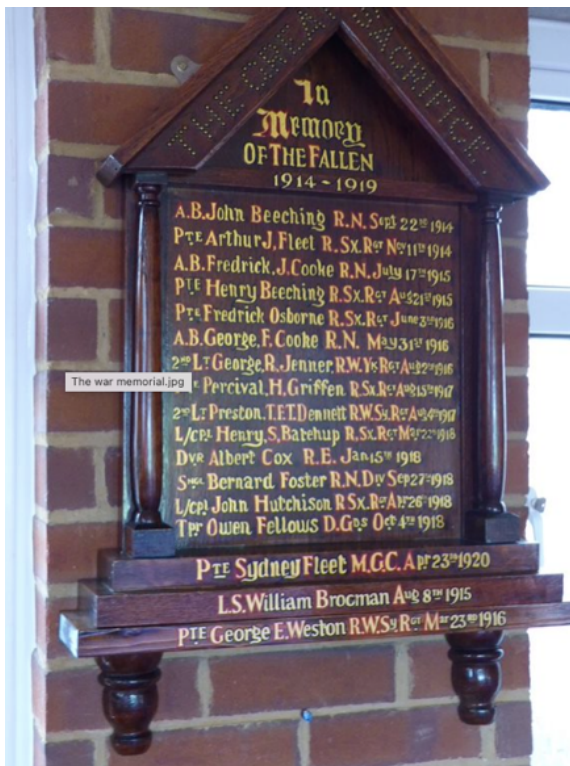 THE GREAT SACRIFICE.
In
Memory
OF THE FALLEN
1914 - 1919
A.B. John Beeching R.N. Sept 22ND 1914
PTE Arthur J. Fleet R.Sx.RGT Nov 11TH 1914
A.B. Fredrick. J. Cooke R.N. July 17TH 1915
PTE Henry Beeching R.Sx.RGT Aug 21ST 1915
PTE Fredrick Osborne R.Sx.RGT June 3RD 1916
A.B. George. F. Cooke R.N. May 31ST 1916
2ND LT George. R. Jenner R.W.Ys RGT Aug 2ND 1916
Percival. H. Griffen R.Sx.RGT Aug 15TH 1917
2ND LT Preston. T.F.T. Dennett R.W.Sy.RGT Aug 4TH 1917
L/CPL Henry. S. Batehup R.Sx.RGT Mar 22ND 1918
DVR Albert Cox R.E. Jan 15TH 1918
Bernard Foster R.N.DIV Sep 27TH 1918
L/CPL John Hutchison R.Sx.RGT Apr 26TH 1918
TPR Owen Fellows D.GDS Oct 4TH 1918
PTE Sydney Fleet M.G.C. Apr 23RD 1920
L.S. William Brocman Aug 8TH 1915
PTE George E. Weston R.W.Sy RGT Mar 23RD 1916
The war memorial.jpg